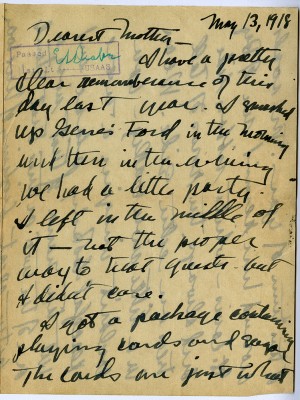 May 13, 1918
Dearest Mother—
Passed
I have a pretty
clear rememberance of this
day last year. I smashed
up Gene's Ford in the morning
and then in the evening
we had a little party.
I left in the middle of
it — not the proper
way to treat guests but
I didn't care.
I got a package containing
playing cards and
The cards are just what